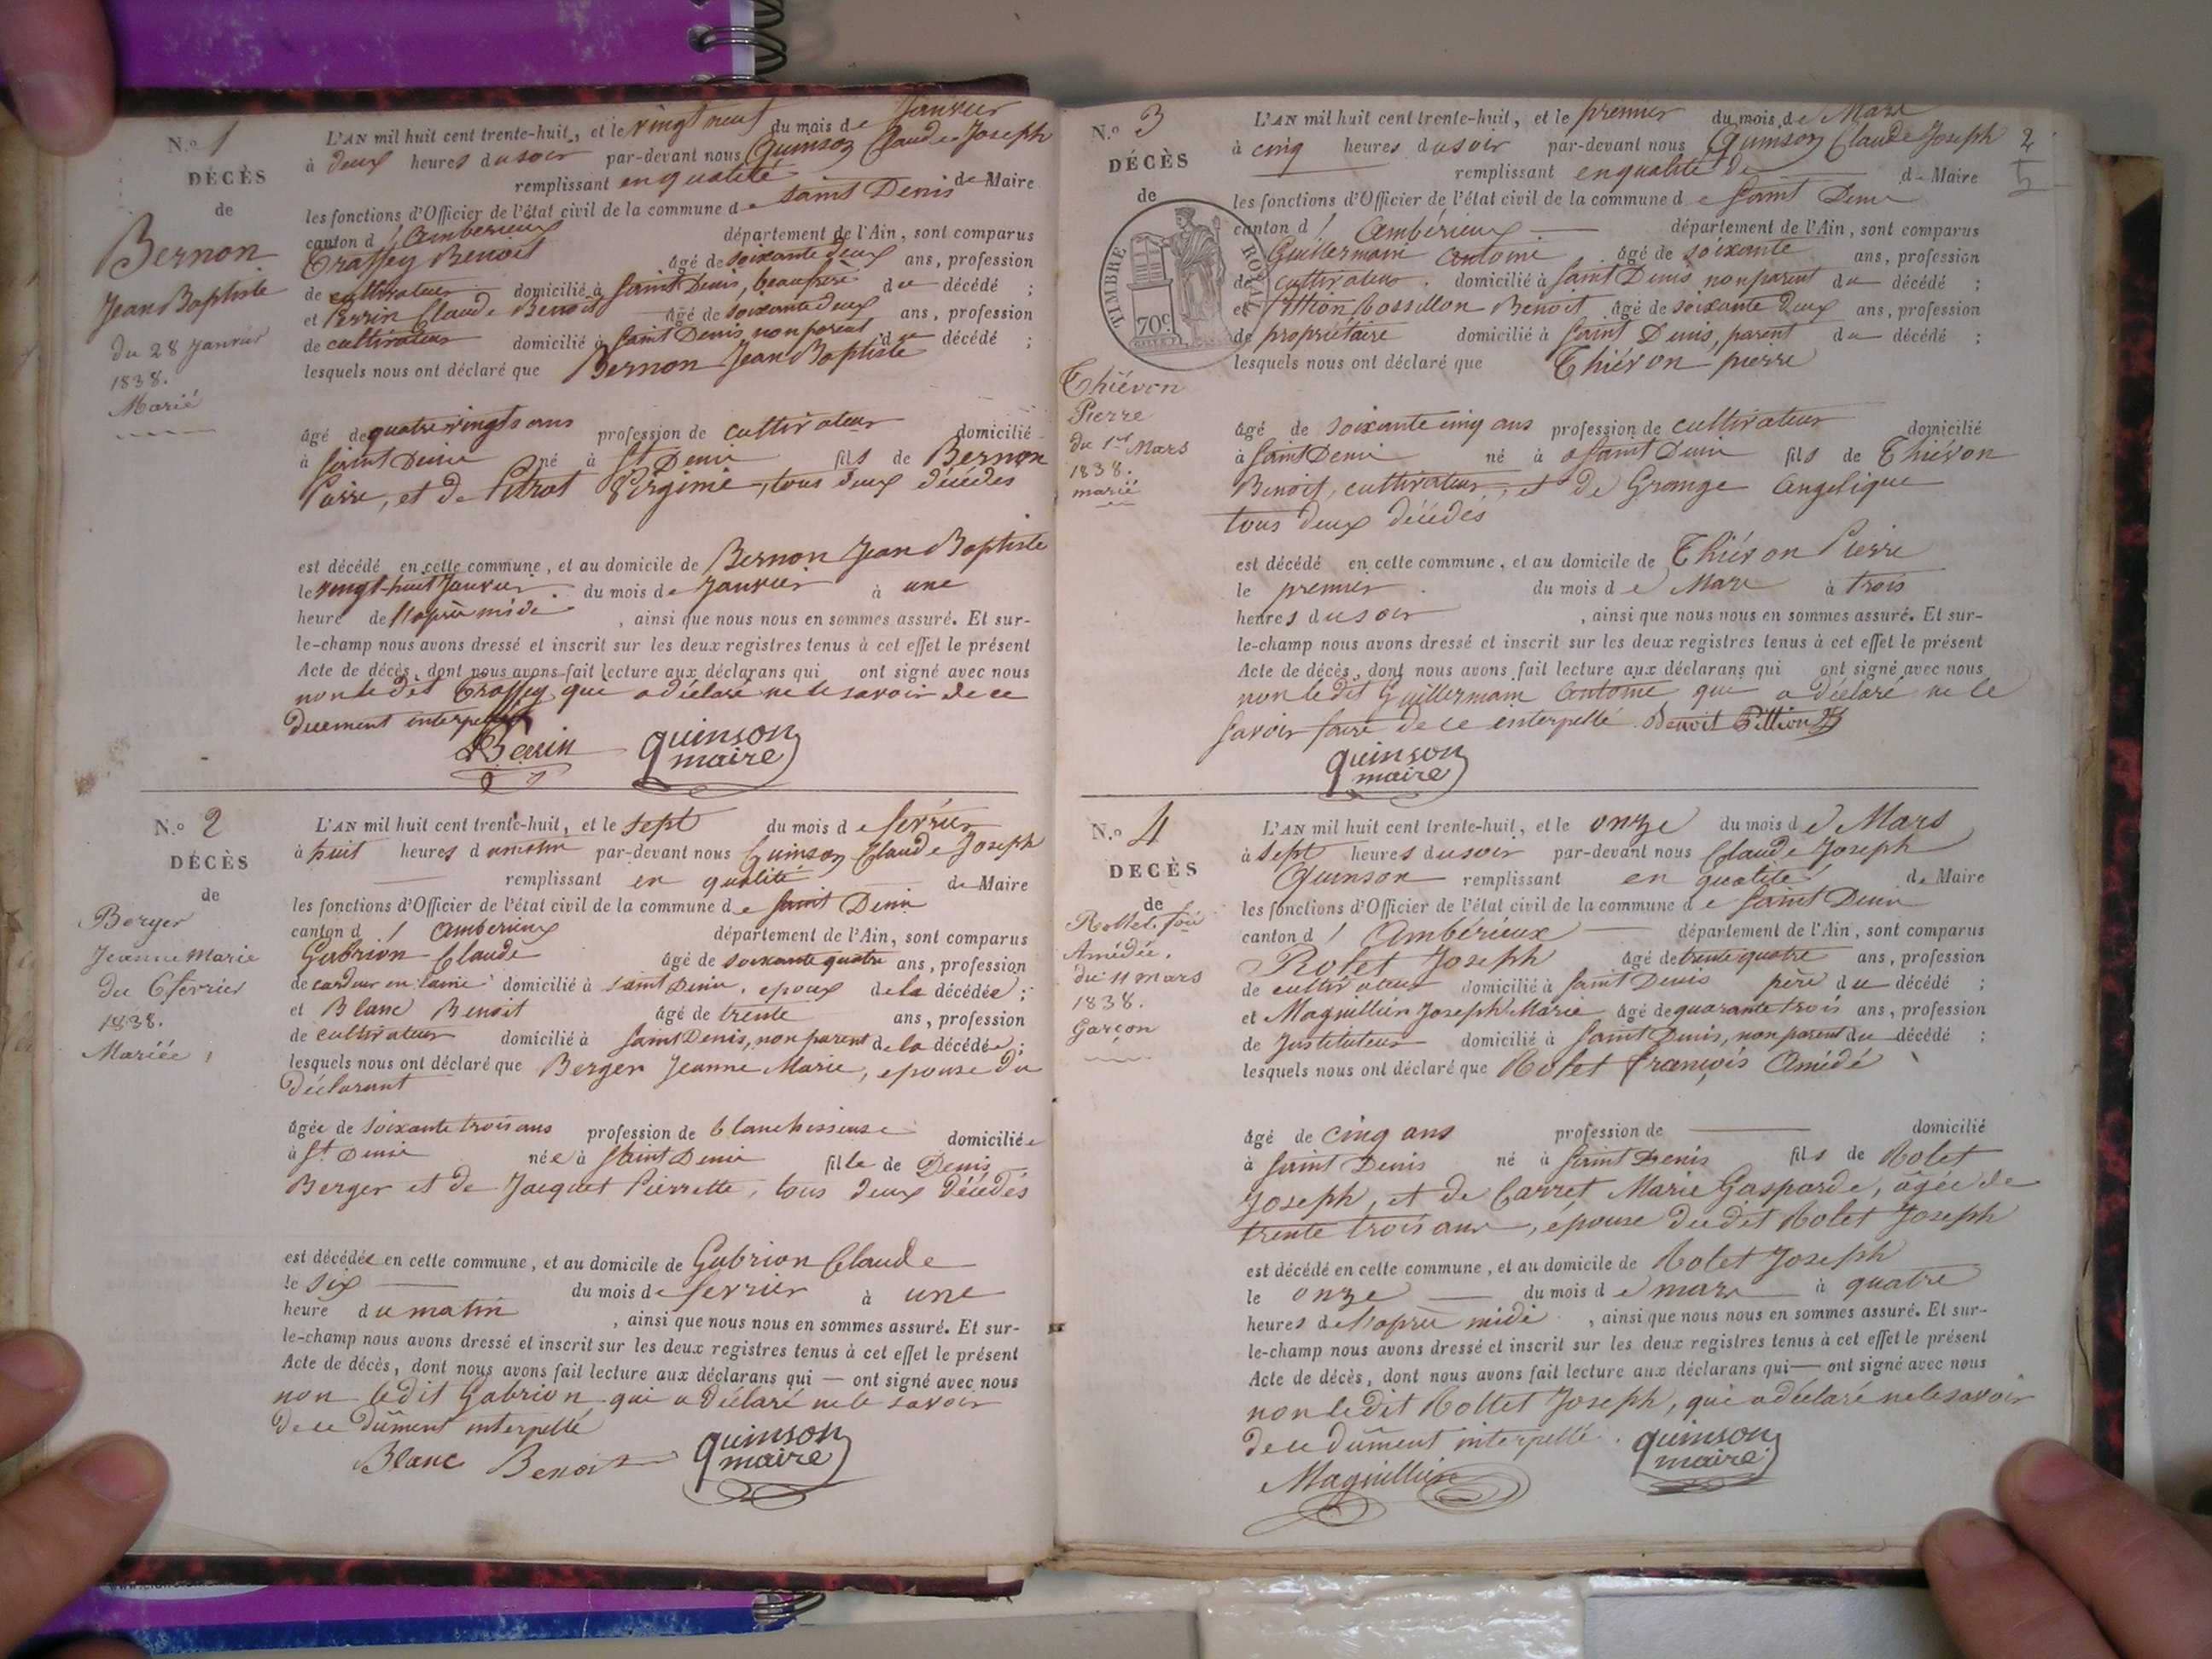 N.o 1
DÉCÈS
de
Bernon
Jean Baptiste
du 28 Janvier
1838.
Marié
L'AN mil huit cent trente-huit, et le vingt neuf du mois de Janvier
à deux heures du soir par-devant nous Quinson Claude Joseph
remplissant en qualité de Maire
les fonctions d'Officier de l'état civil de la commune de Saint Denis
canton d'Ambérieux département de l'Ain, sont comparus
Traffey Benoit âgé de soixante deux ans, profession
de cultivateur domicilié à Saint Denis, beaufrère du décédé ;
et Perrin Claude Benoit âgé de soixante deux ans, profession
de cultivateur domicilié à Saint Denis, non parent du décédé ;
lesquels nous ont déclaré que Bernon Jean Baptiste
âgé de quatre vingts ans profession de cultivateur domicilié
à Saint Denis né à St Denis fils de Bernon
Pierre, et de Pitrat Virginie, tous deux décédés
est décédé en cette commune, et au domicile de Bernon Jean Baptiste
le vingt-huit Janvier du mois de Janvier à une
heure de l'après midi, ainsi que nous nous en sommes assuré. Et sur-
le-champ nous avons dressé et inscrit sur les deux registres tenus à cet effet le présent
Acte de décès, dont nous avons fait lecture aux déclarans qui ont signé avec nous
non le dit Traffey que a déclaré ne le savoir de ce
duement interpellé
Perrin
quinson
maire
N.o 2
DÉCÈS
de
Berger
Jeanne Marie
du 6 février
1838.
Mariée
L'AN mil huit cent trente-huit, et le sept du mois de février
à huit heures du matin par-devant nous Quinson Claude Joseph
remplissant en qualité de Maire
les fonctions d'Officier de l'état civil de la commune de Saint Denis
canton d'Ambérieux département de l'Ain, sont comparus
Gabrion Claude âgé de soixante quatre ans, profession
de cardeur en laine domicilié à Saint Denis, epoux de la décédée ;
et Blanc Benoit âgé de trente ans, profession
de cultivateur domicilié à Saint Denis, non parent de la décédée ;
lesquels nous ont déclaré que Berger Jeanne Marie, epouse du
déclarant
âgée de soixante trois ans profession de blanchisseuse domiciliée
à St Denis née à Saint Denis fille de Denis
Berger et de Jacquet Pierrette, tous deux décédés
est décédée en cette commune, et au domicile de Gabrion Claude
le six du mois de février à une
heure du matin, ainsi que nous nous en sommes assuré. Et sur-
le-champ nous avons dressé et inscrit sur les deux registres tenus à cet effet le présent
Acte de décès, dont nous avons fait lecture aux déclarans qui — ont signé avec nous
non le dit Gabrion qui a déclaré ne le savoir
de ce dûment interpellé
Blanc Benoit
quinson
maire
N.o 3
DÉCÈS
de
TIMBRE ROYAL
70c
Thiévon
Pierre
du 1er Mars
1838.
marié
2
L'AN mil huit cent trente-huit, et le premier du mois de Mars
à cinq heures du soir par-devant nous Quinson Claude Joseph
remplissant en qualité de d Maire
les fonctions d'Officier de l'état civil de la commune de Saint Denis
canton d'Ambérieux département de l'Ain, sont comparus
Guillermain Antoine âgé de soixante ans, profession
de cultivateur domicilié à Saint Denis non parent du décédé ;
et Benoit âgé de soixante deux ans, profession
de propriétaire domicilié à Saint Denis, parent du décédé ;
lesquels nous ont déclaré que Thiévon pierre
âgé de soixante cinq ans profession de cultivateur domicilié
à Saint Denis né à Saint Denis fils de Thiévon
Benoit, cultivateur, et de Grange Angelique
tous deux décédés
est décédé en cette commune, et au domicile de Thiévon Pierre
le premier du mois de Mars à trois
heures du soir, ainsi que nous nous en sommes assuré. Et sur-
le-champ nous avons dressé et inscrit sur les deux registres tenus à cet effet le présent
Acte de décès, dont nous avons fait lecture aux déclarans qui ont signé avec nous
non le dit Guillermain Antoine que a déclaré ne le
savoir faire de ce interpellé. Benoit Pittion
quinson
maire
N.o 4
DECÈS
de
Rollet
Amédée.
du 11 mars
1838.
Garçon
L'AN mil huit cent trente-huit, et le onze du mois de Mars
à sept heures du soir par-devant nous Claude Joseph
Quinson remplissant en qualité de Maire
les fonctions d'Officier de l'état civil de la commune de Saint Denis
canton d'Ambérieux département de l'Ain, sont comparus
Rolet Joseph âgé de trente quatre ans, profession
de cultivateur domicilié à Saint Denis père du décédé ;
et Maguillier Joseph Marie âgé de quarante trois ans, profession
de Instituteur domicilié à Saint Denis, non parent du décédé ;
lesquels nous ont déclaré que Rolet françois Amédé
âgé de cinq ans profession de domicilié
à Saint Denis né à Saint Denis fils de Rolet
Joseph, et de Carret Marie Gasparde, âgée de
trente trois ans, épouse du dit Rolet Joseph
est décédé en cette commune, et au domicile de Rolet Joseph
le onze du mois de mars à quatre
heures de l'après midi, ainsi que nous nous en sommes assuré. Et sur-
le-champ nous avons dressé et inscrit sur les deux registres tenus à cet effet le présent
Acte de décès, dont nous avons fait lecture aux déclarans qui — ont signé avec nous
non le dit Rollet Joseph, qui a déclaré ne le savoir
de ce dûment interpellé.
quinson
maire
Maguillier